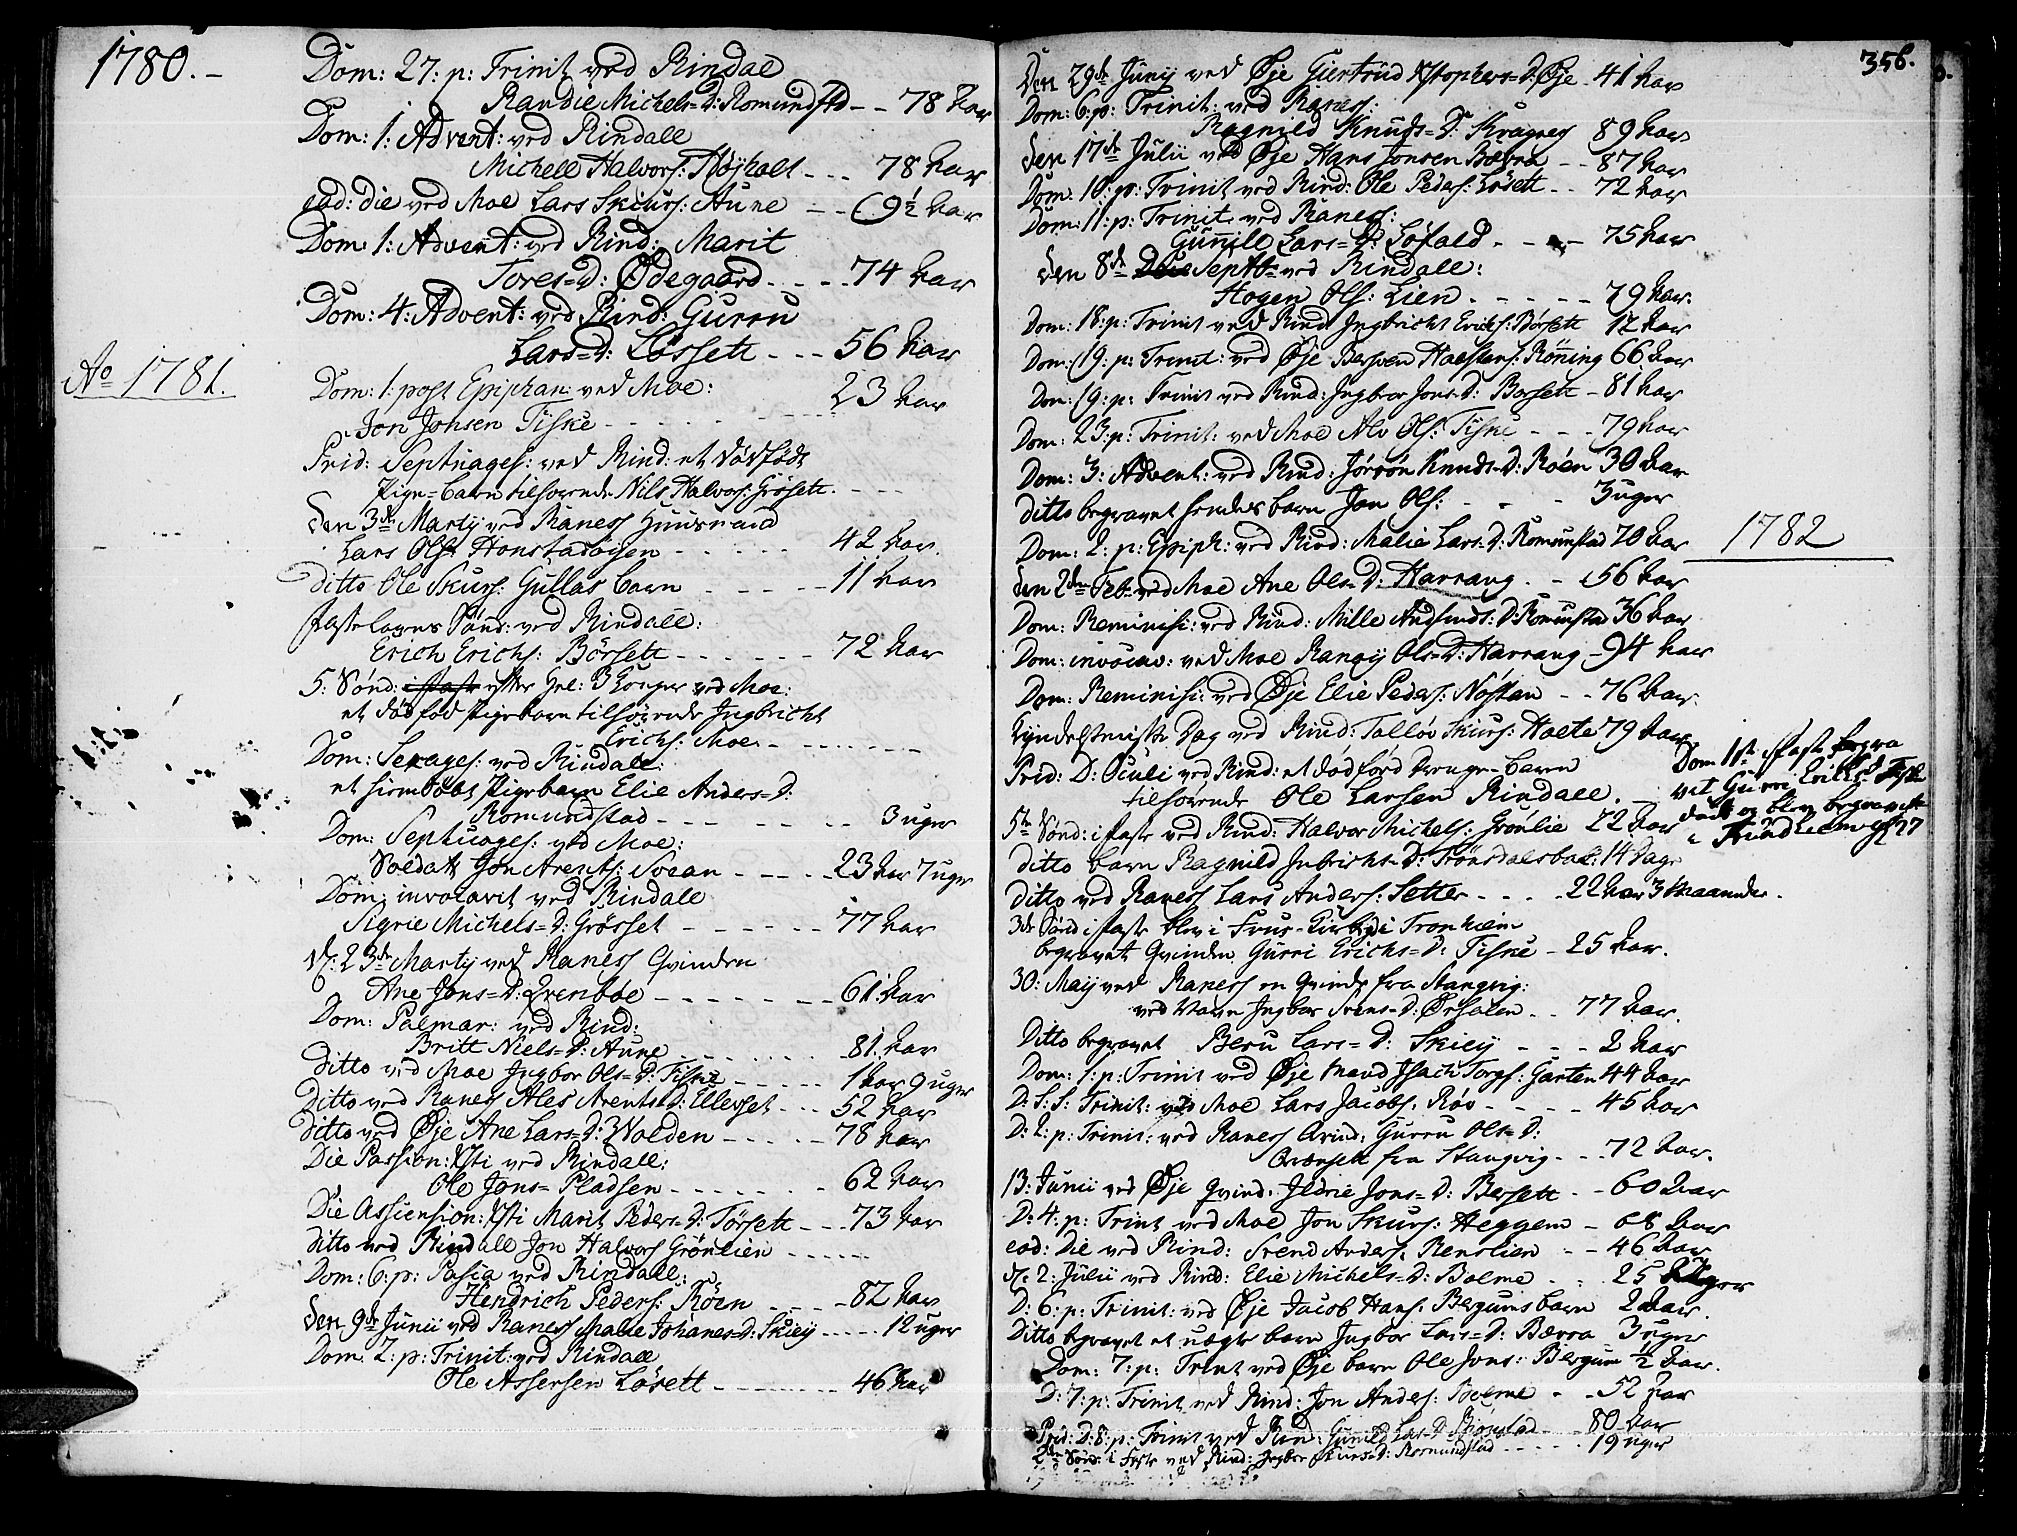 1780.-
Dom: 27: p: Trinit ved Rindal
Randie Michels=D: Romundstd - - 78 Aar
Dom: 1: Advent: ved Rindall
Michell Halvors: - - - 78 Aar
ead: die ved Moe Lars Skiurs: Aune - - 69½ Aar
Dom: 1: Advent: ved Rind: Marit
Tores=D: Ødegaard - - - - 74 Aar
Dom: 4: Advent: ved Rind: Gurru
Lars=d: Løssett - - - 56 Aar
Ao 1781.
Dom: 1: post Epiphan: ved Moe:
Jon Johsen Tiske - - - - 23 Aar
Prid: Septuages: ved Rind: et dødfødt
Pige=barn tilhørende Nils Halvors: Grøsett. - - -
den 3de Martij ved Raness Huusmand
Lars Ols: Honstadøyen - - - - - 42 Aar.
Ditto Ole Skurs: Gullas barn - - - - - 11 Aar
Fastelavns Sønd: ved Rindall:
Erich Erichs: Børsett - - - - - - 72 Aar
5: Sønd: efter Hel: 3 Konger ved Moe:
et dødfød Pigebarn tilhørende Ingbricht
Erichs: Moe. - - - - - - -
Dom: Sexages: ved Rindall:
et hiemdøbt Pigebarn Elie Anders=D:
Romundstad - - - - - - 3 uger
Dom: Septuages: ved Moe:
Soldatt Jon Arents: Svean - - - - - 23 Aar 7 uger
Dom: invocavit ved Rindall
Sigrie Michels=D: Grøsset - - - - - - 77 Aar
d: 23de Martij ved Raness Qvinden
Ane Jons=D: Qvenboe - - - - - - - 61 Aar
Dom: Palmar: ved Rind:
Britt Niels=D: Aune - - - - - - 81 Aar
Ditto ved Moe Ingbor Ols=D: Tiske - - - - - 1 Aar 9 uger
Ditto ved Raness Ales Arents=d: Ellevset - - - 52 Aar
Ditto ved Øje Ane Lars=D: Wolden - - - - - 78 Aar
Die Passion: Xsti ved Rindall:
Ole Jons= Pladsen - - - - - - - 62 Aar
Die Assension: Xsti Marit Peders=D: Tørsett - - - 73 Aar
Ditto ved Rindall Jon Halvors Grønlien - - - - - -
Dom: 6: p: Pasca ved Rindall:
Hendrich Peders: Røen - - - - 82 Aar
Den 9de Junii ved Raness Malie Johanes=D: Skiey - - - - 12 uger
Dom: 2: p: Trinit: ved Rindall
Ole Assersen Løsett - - - - - - 46 Aar
356.
Den 29de Junij ved Øje Giertrud Xstophers=D: Øje - 41 Aar
Dom: 6: p: Trinit: ved Raness:
Ragnild Knuds=D: Kragnes 89 Aar
den 17de Julii ved Øje Hans Jonsen Bævra - - 87 Aar
Dom: 10: p: Trinit ved Rind: Ole Peders: Løsett - - 72 Aar
Dom: 11: p: Trinit: ved Raness:
Gunnild Lars=D: Løfald - - - - 75 Aar
den 8de Septb= ved Rindall:
Hogen Ols: Lien. - - - - - 79 Aar.
Dom: 18: p: Trinit ved Rind: Ingbricht Erichs: Børsett 12 Aar
Dom: 19: p: Trinit: ved Øje Berven Halstens: Rønning 66 Aar
Dom: 19: p: Trinit ved Rind: Ingbor Jons=D: Børsett - 81 Aar
Dom: 23: p: Trinit: ved Moe Alv Ols: Tiske - - - 79 Aar
Dom: 3: Advent: ved Rind: Jørøn Knuds=D: Røen 30 Aar
Ditto begravet hendes barn Jon Ols: - - - 3 uger
1782
Dom: 2: p: Epiph: ved Rind: Malie Lars=D: Romunstad 70 Aar
den 2den Feb= ved Moe Ane Ols=D: Harrang. - 56 Aar
Dom: Reminisc: ved Rind: Mille D: Romunstad 36 Aar
Dom: invocav: ved Moe Rangij Ols=D: Harrang - 94 Aar
Dom: Reminisc: ved Øje Elie Peders: Nøstan - - 76 Aar.
Kyndelsmisse Dag ved Rind: Tolløv Skurs: Holte 79 Aar
Prid: D: Oculi ved Rind: et dødfød Drenge=barn
tilhørende Ole Larsen Rindall. -
Dom 1st i Faste begra
vet Gurri Erichsd Tiske
død og blev begravet
i Trundhiem 27
5te Sønd: i Faste ved Rind: Halvor Michels: Grønlie 72 Aar
Ditto barn Ragnild Inbrichs=D: Trønsdalsbak: 14 Dage
Ditto ved Raness Lars Anders: Setter - - - - 22 Aar 3 Maaneder.
3de Sønd i Faste blev i Frue=Kirke i Tronhiem
begravet Qvinden Gurri Erichs=D: Tiske - 25 Aar.
30: Maij ved Raness en Qvinde fra Stangvig:
ved Navn Ingbor Svens=D: Ørsalen - - 77 Aar.
Ditto begravet Beru Lars=D: Skiey - - - 2 Aar
Dom: 1: p: Trinit ved Øje Mand Isach Torgs: Garten 44 Aar
D: S: S: Trinit: ved Moe Lars Jacobs: Røv - - - - 45 Aar
D: 2: p: Trinit: ved Raness Qvind: Gurru Ols=D:
Qvensett fra Stangvig - - - 72 Aar.
13: Junii ved Øje Qvind: Ildrie Jons=D: Bersett - - 60 Aar
D: 4: p: Trint ved Moe Jon Skurs: Heggem - 68 Aar
eod: Die ved Rind: Svend Anders: Renslien - - 46 Aar
d: 2: Julii ved Rind: Elie Michels=D: Bolme - - 25 Uger
D: 6: p: Trinit: ved Øje Jacob Hans: Bergums barn 2 Aar.
Ditto begravet et uægte barn Ingbor Lars=D: Bævra 3 uger
Dom: 7: p: Trint ved Øje barn Ole Jons: Bergum ½ Aar.
D: 7: p: Trinit ved Rind: Jon Anders: Bolme - - 52 Aar
Prid: D: 8: p: Trinit ved Rind: Gunild Lars=D - - 80 Aar
2den Sønd: i Faste ved Rind: Ingbor Skurs=D: Romundstad - - - - - 19 uger